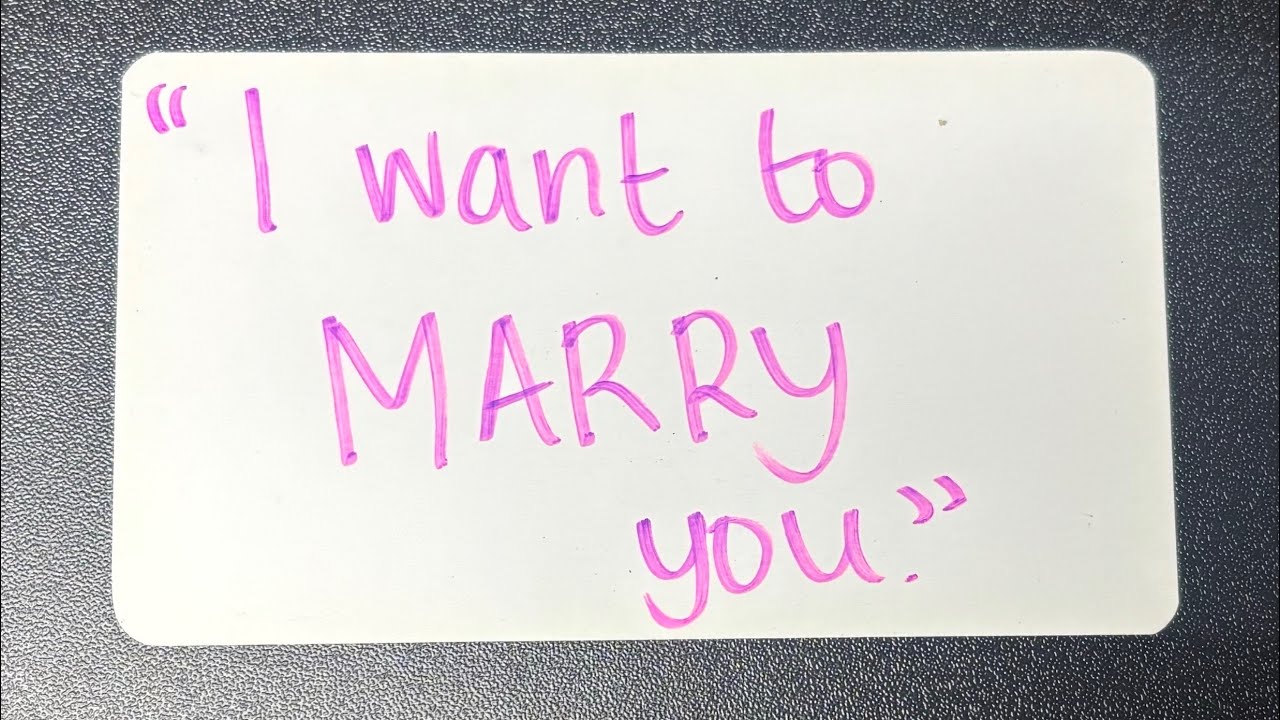 “I want to
MARRY
you.”